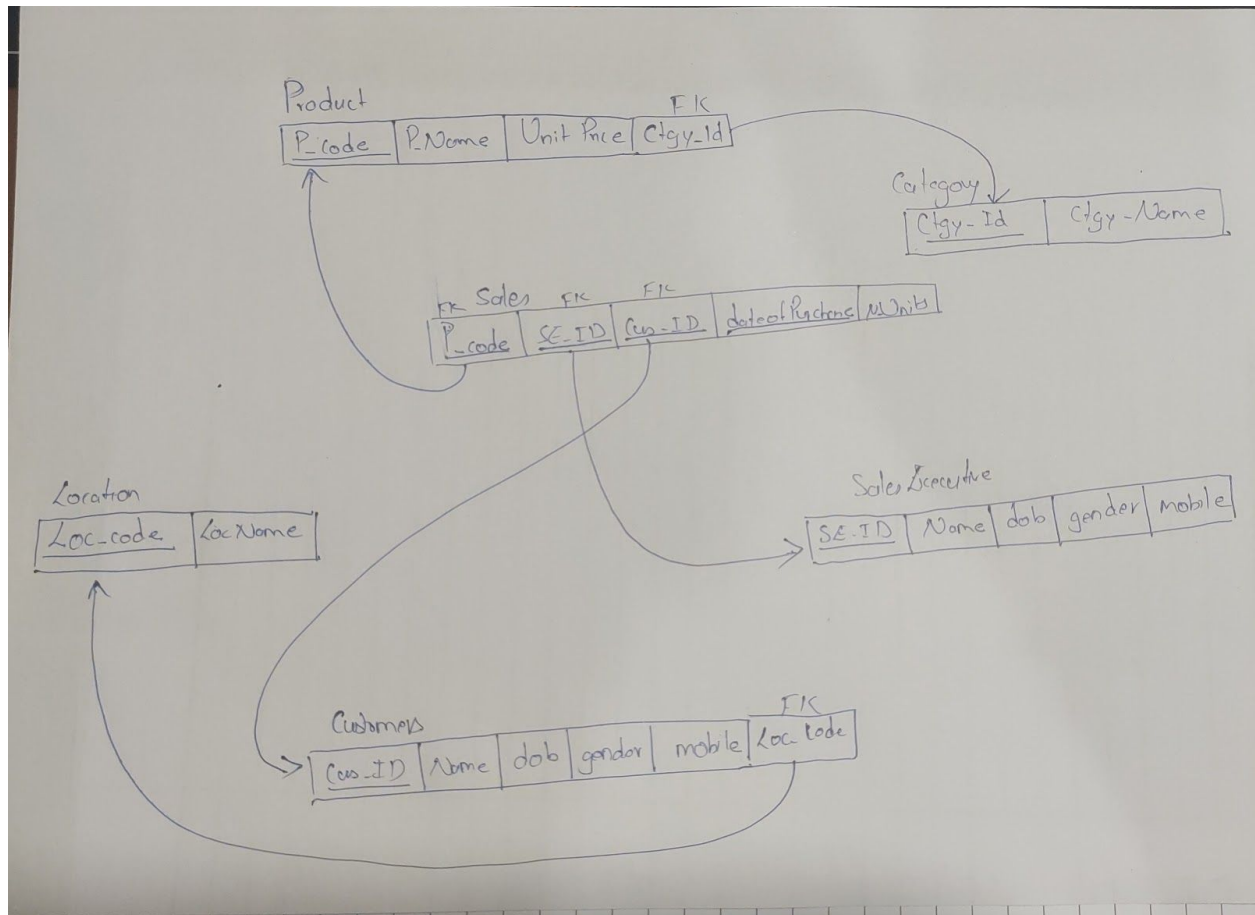 Product
FK
P_code P_Name Unit Price Ctgy_Id
Category
Ctgy-Id Ctgy-Name
FK Sales FK FK
P_code SE_ID Cus_ID dateofPurchase NUnits
Location
Loc_code Loc Name
Sales Executive
SE-ID Name dob gender mobile
FK
Customers
Cus_ID Name dob gender mobile Loc_Code